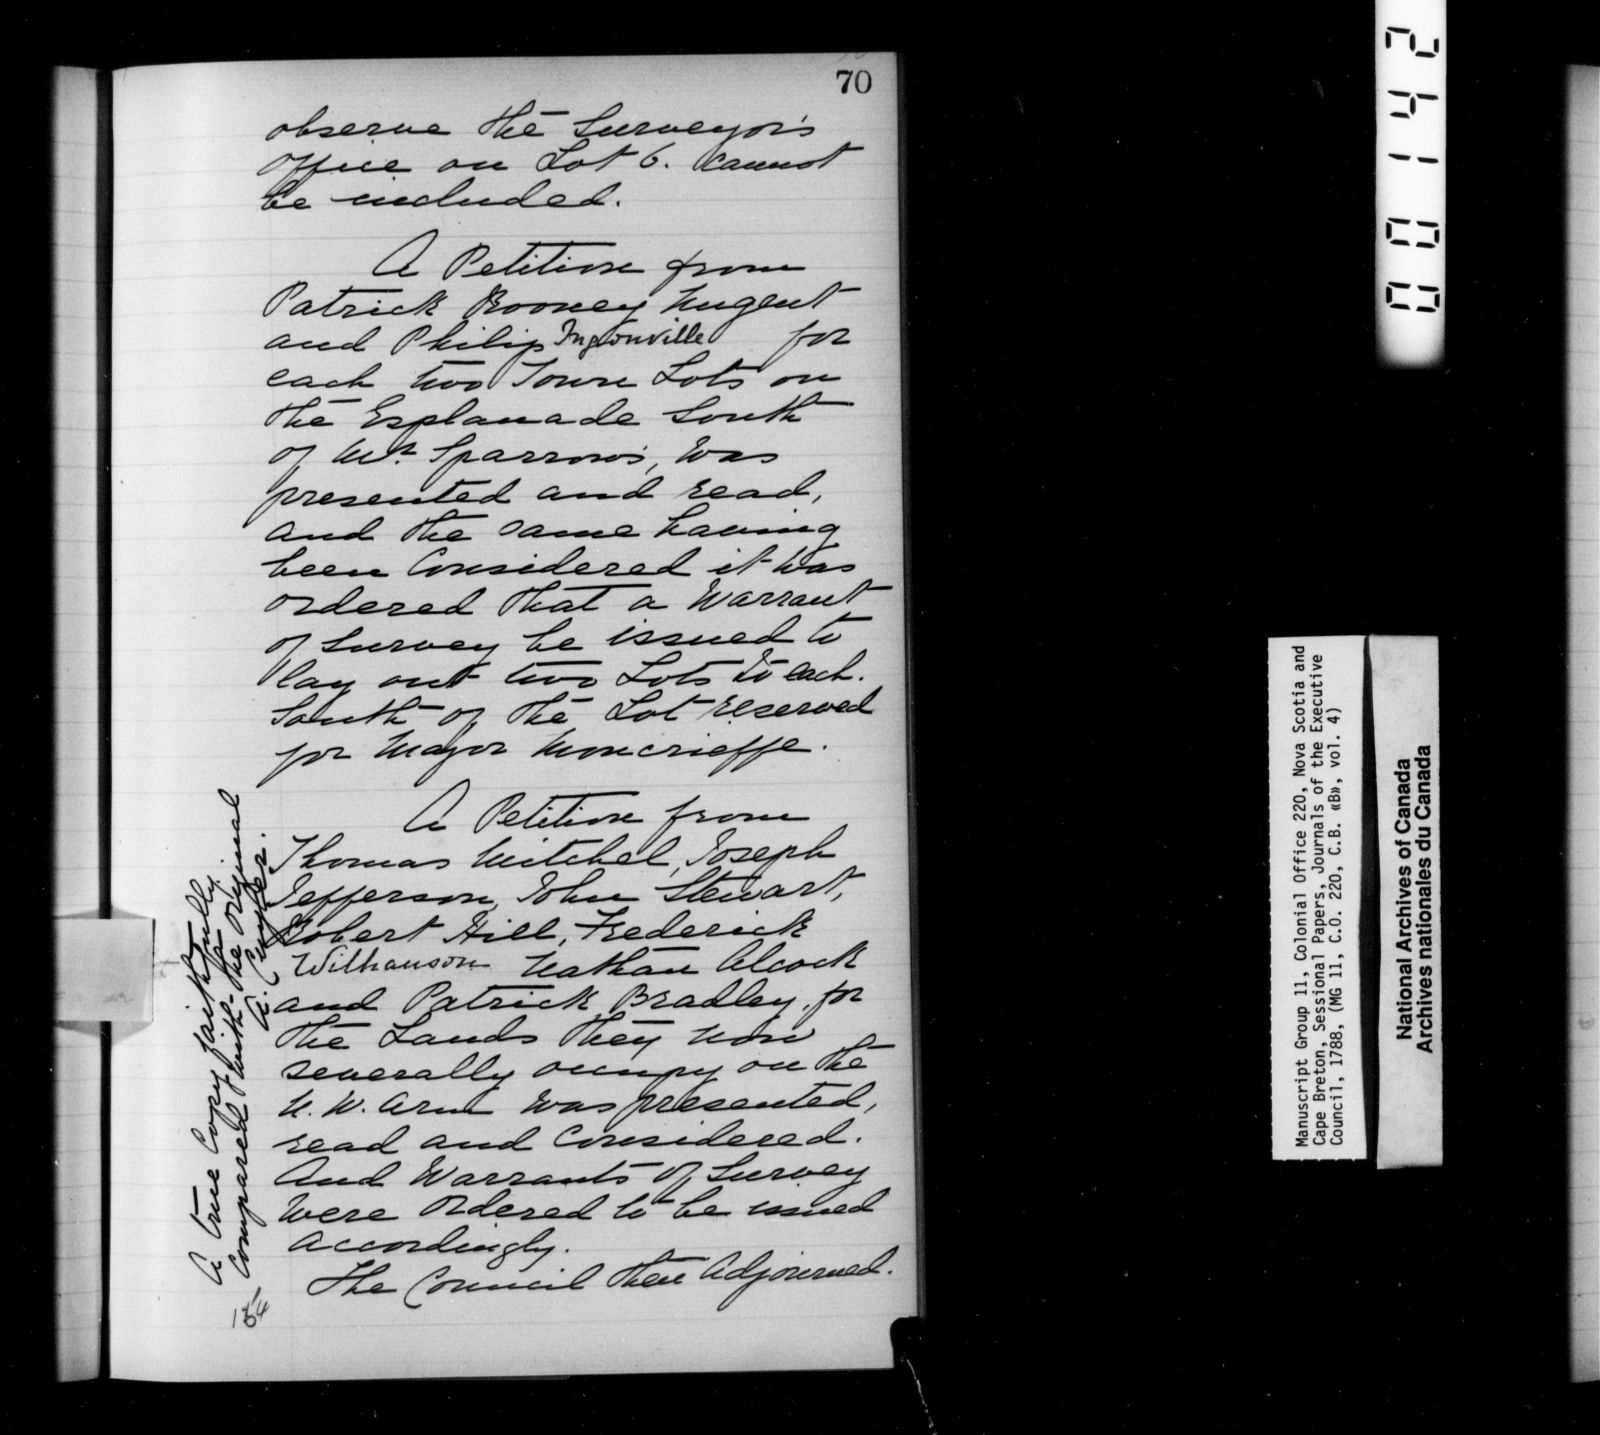 70
observe the Surveyor's
office on Lot 6. cannot
be included.
A Petition from
Patrick Rooney Nugent
and Philip Ingouville for
each two Town Lots on
the Esplanade South
of Mr. Sparrow's, was
presented and read,
and the same having
been Considered it was
ordered that a Warrant
of Survey be issued to
lay out two Lots to each.
South of the Lot reserved
for Major Moncrieffe.
A Petition from
Thomas Mitchel, Joseph
Jefferson, John Stewart,
Robert Hill, Frederick
Wilhauson Nathan Alcock
and Patrick Bradley, for
the Lands they now
severally occupy on the
N. W. Arm was presented,
read and Considered.
And Warrants of Survey
were ordered to be issued
accordingly.
The Council then Adjourned.
A true Copy faithfully
Compared with the original
A. Cuyler.
154
00142
Manuscript Group 11, Colonial Office 220, Nova Scotia and
Cape Breton, Sessional Papers, Journals of the Executive
Council, 1788, (MG 11, C.O. 220, C.B. «B», vol. 4)
National Archives of Canada
Archives nationales du Canada